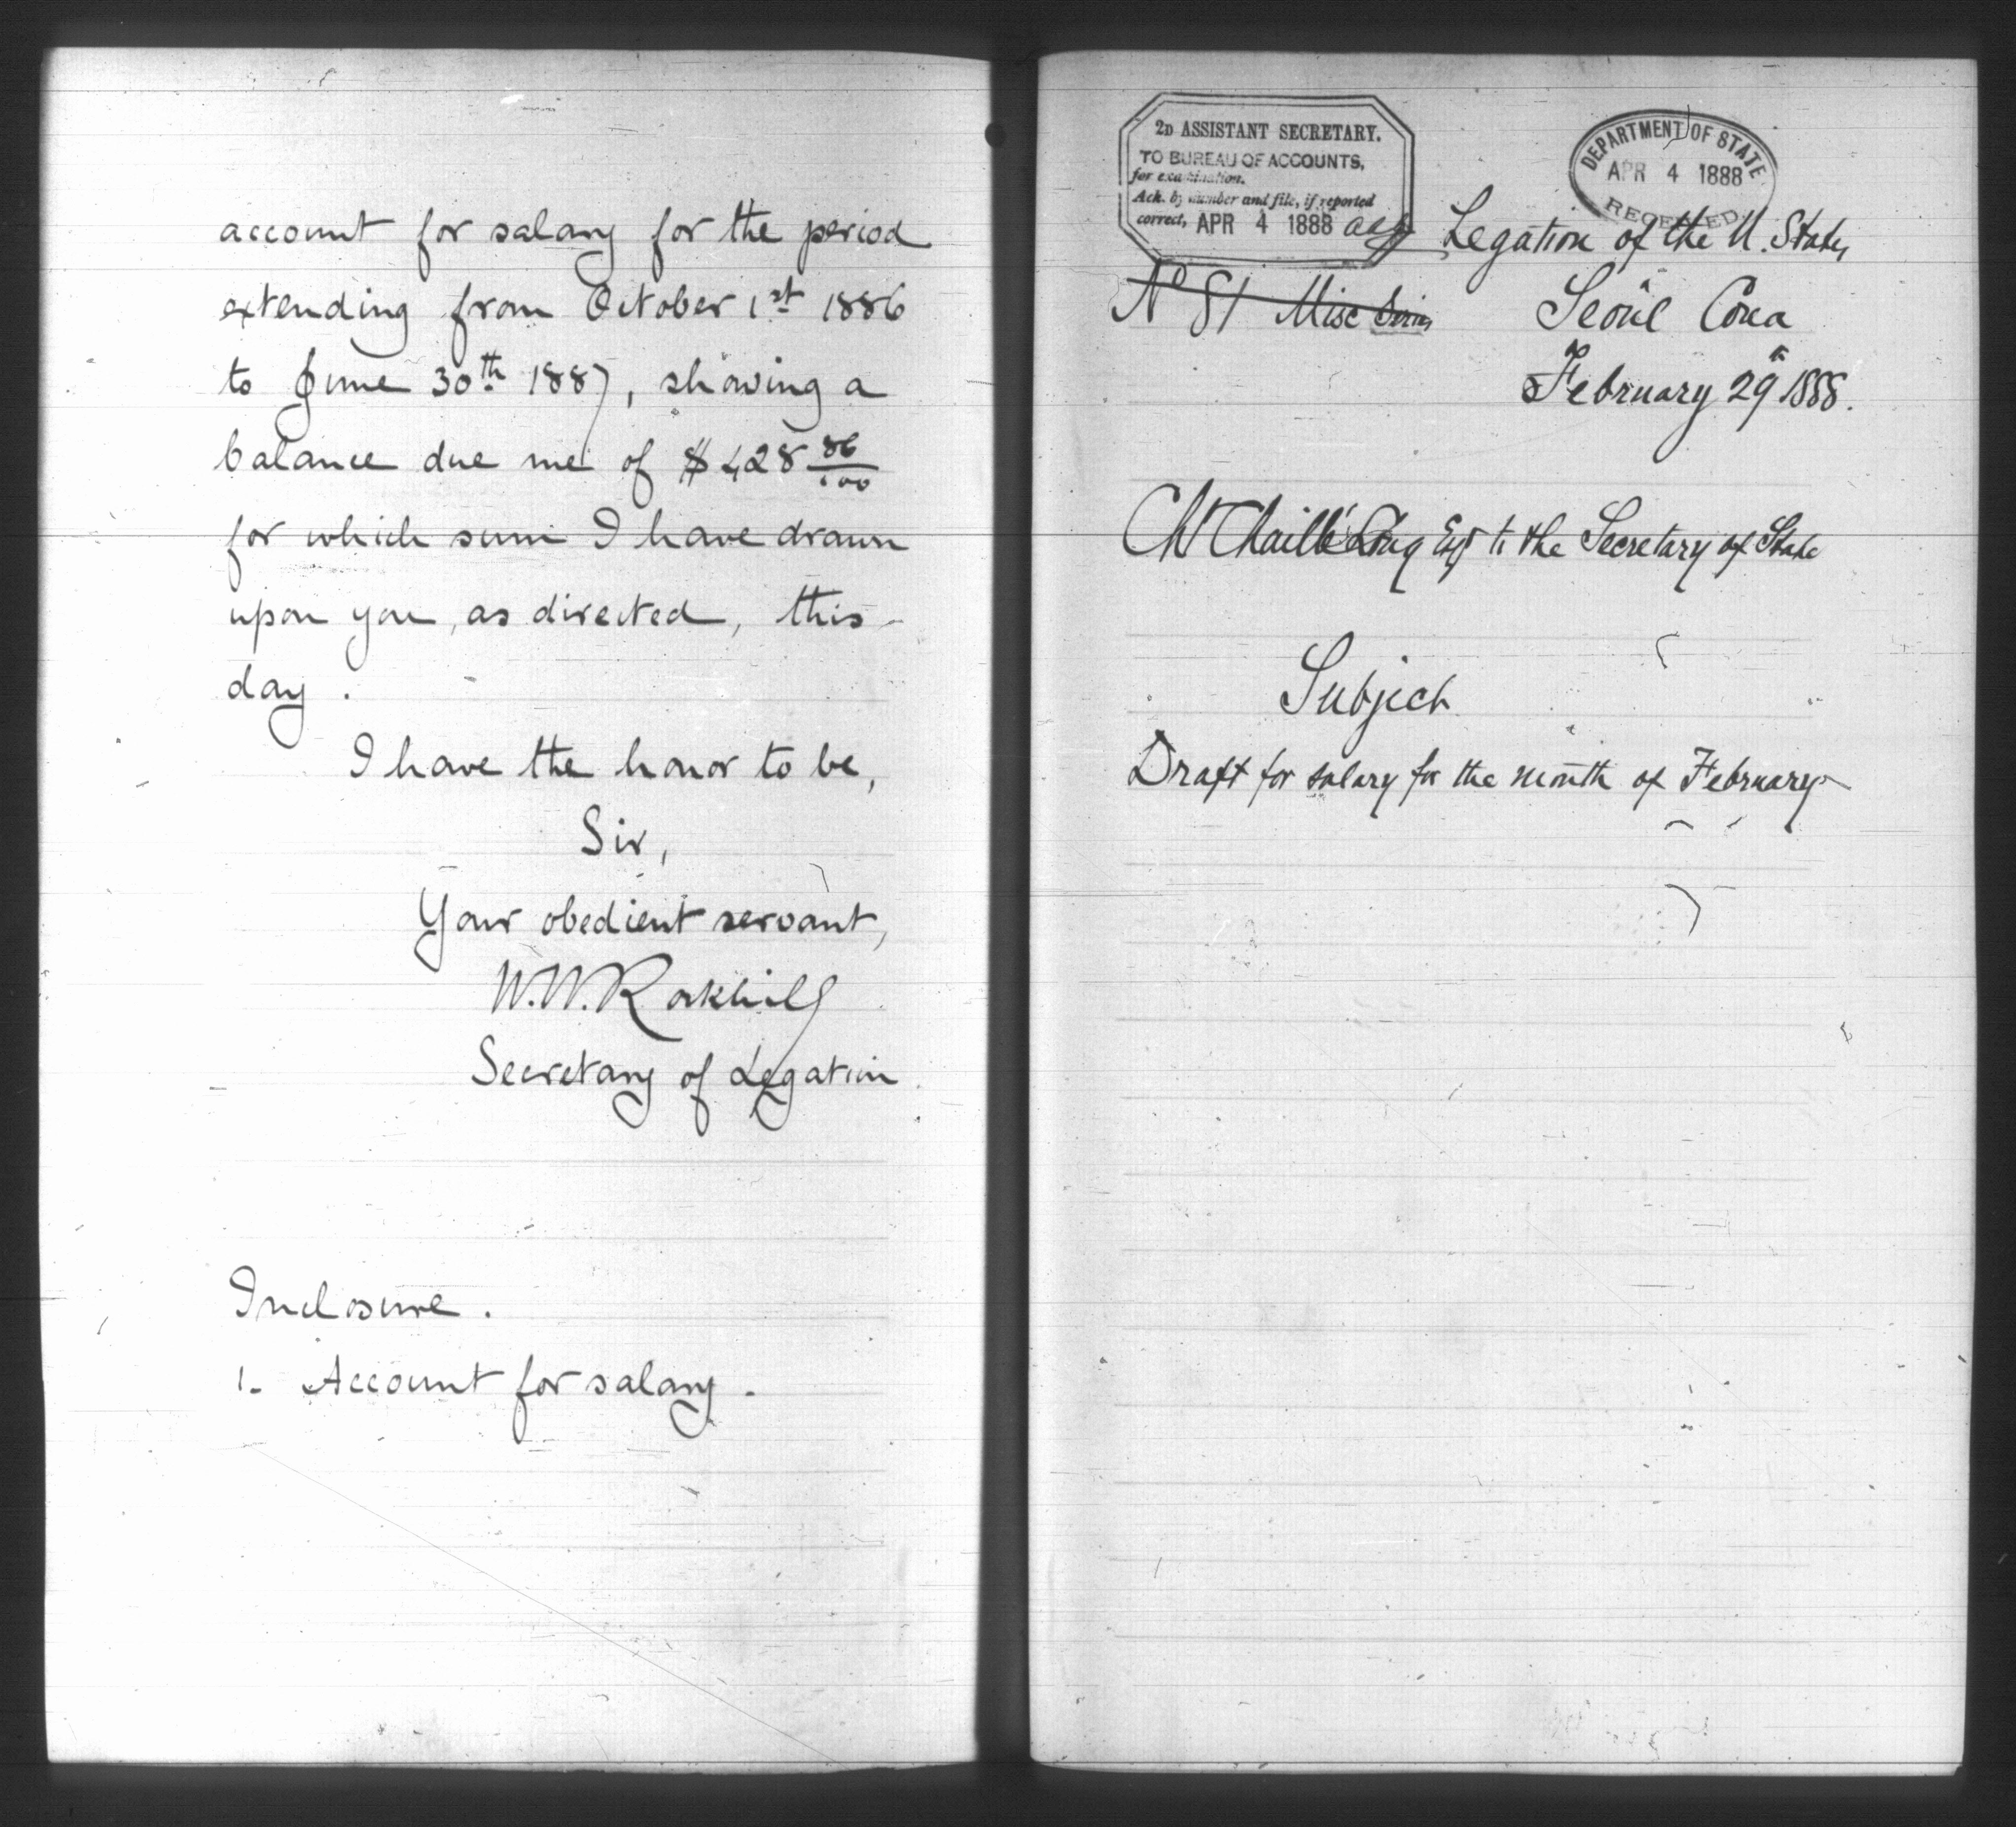 account for salary for the period
extending from October 1st 1886
to June 30th 1887, showing a
balance due me of $428 86/100
for which sum I have drawn
upon you, as directed, this
day.
I have the honor to be,
Sir,
Your obedient servant,
W.W. Rockhill
Secretary of Legation
Inclosure.
1. Account for salary.
2D ASSISTANT SECRETARY.
TO BUREAU OF ACCOUNTS,
for examination.
Ack. by number and file, if reported
correct, APR 4 1888
DEPARTMENT OF STATE
APR 4 1888
RECEIVED
Legation of the U. States
No 81 Misc Series
Seoül Corea
February 29th 1888.
Ch Chaillé Long Esq to the Secretary of State
Subject
Draft for salary for the month of February